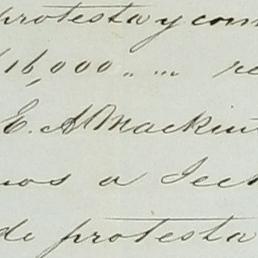 protesta y com
16,000 „ ... re
E. A Mackin
nos a Teck
de protesta